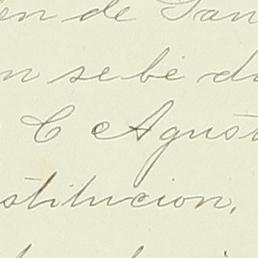 en de San
n se be di
C Agust
stitucion,